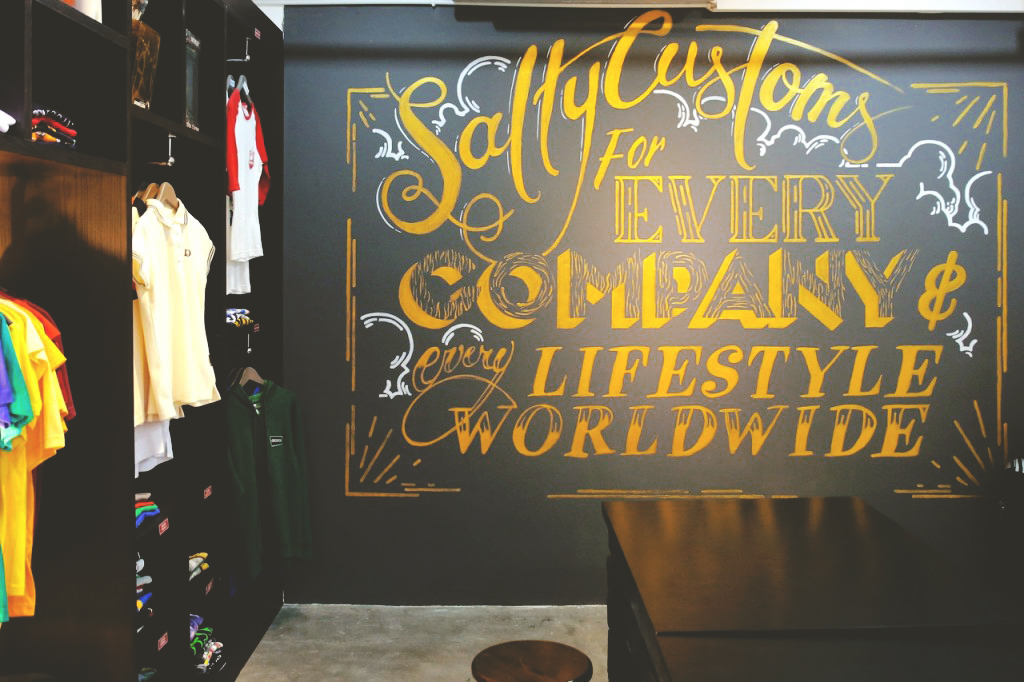 Salty Customs
For
EVERY
COMPANY &
every LIFESTYLE
WORLDWIDE